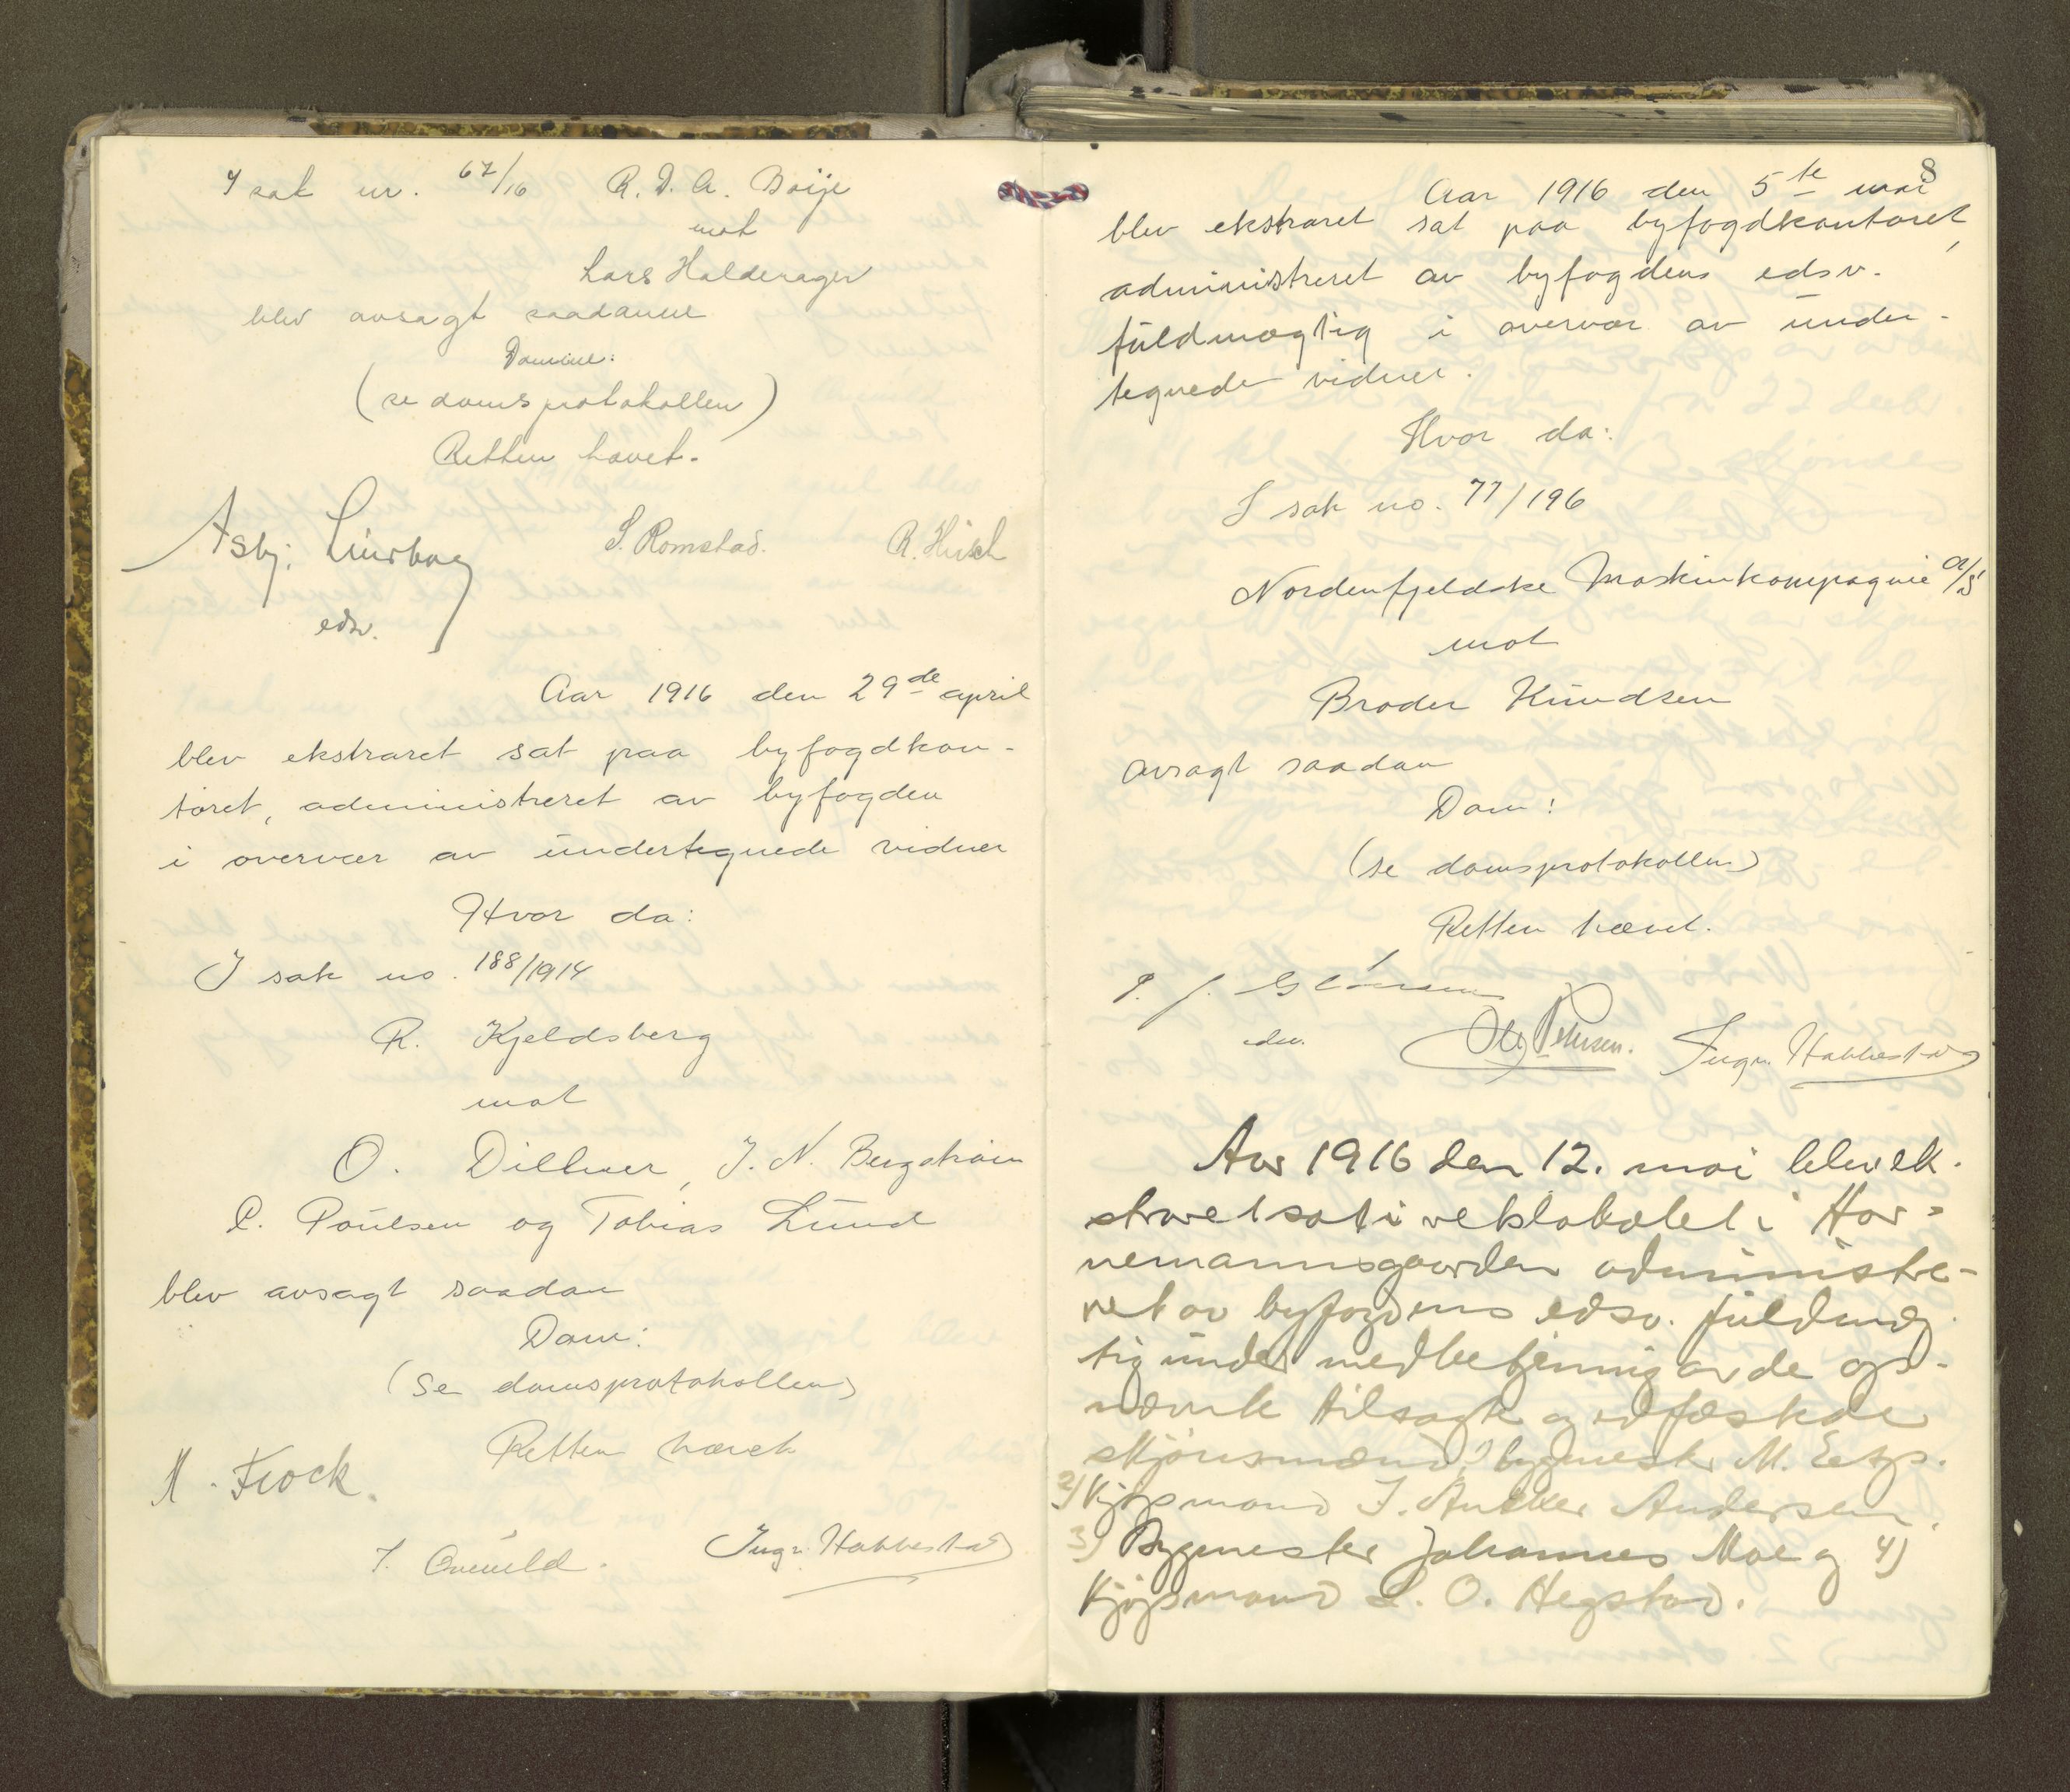 I sak nr. 67/16 R. D. A. Boije
mot
Lars Halderager
blev avsagt saadanne
Domme:
(se domsprotokollen)
Retten hævet.
Asbj:
S. Romstad.
R. Hirsch
edsv.
Aar 1916 den 29de april
blev ekstraret sat paa byfogdkon-
toret, administreret av byfogden
i overvær av undertegnede vidner
Hvor da:
I sak no. 188/1914
R. Kjeldsberg
mot
O. Dillner, J. N. Bergstrøm
P. Poulsen og Tobias Lund
blev avsagt saadan
Dom:
(se domsprotokollen)
Retten hævet
Ingv. Habbestad
8
Aar 1916 den 5te mai
blev ekstraret sat paa byfogdkontoret,
administreret av byfogdens edsv.
fuldmægtig i overvær av under-
tegnede vidner.
Hvor da:
I sak no. 77/196
Nordenfjeldske Maskinkompagnie A/S
mot
Broder Knudsen
avsagt saadan
Dom:
(se domsprotokollen)
Retten hævet.
edsv.
Ole Petersen.
Ingv. Habbestad
Aar 1916 den 12. mai blev ek-
straret sat i retslokalet i Hor-
nemannsgaarden administre-
ret av byfogdens edsv. fuldmæg-
tig under medbetjening av de op-
nævnte tilsagte og edfæstede
skjønsmænd: 1) bygmester M.
2) Kjøpmand J. Andersen.
3) Bygmester Johannes Moe og 4)
Kjøpmand L. O. Hegstad.